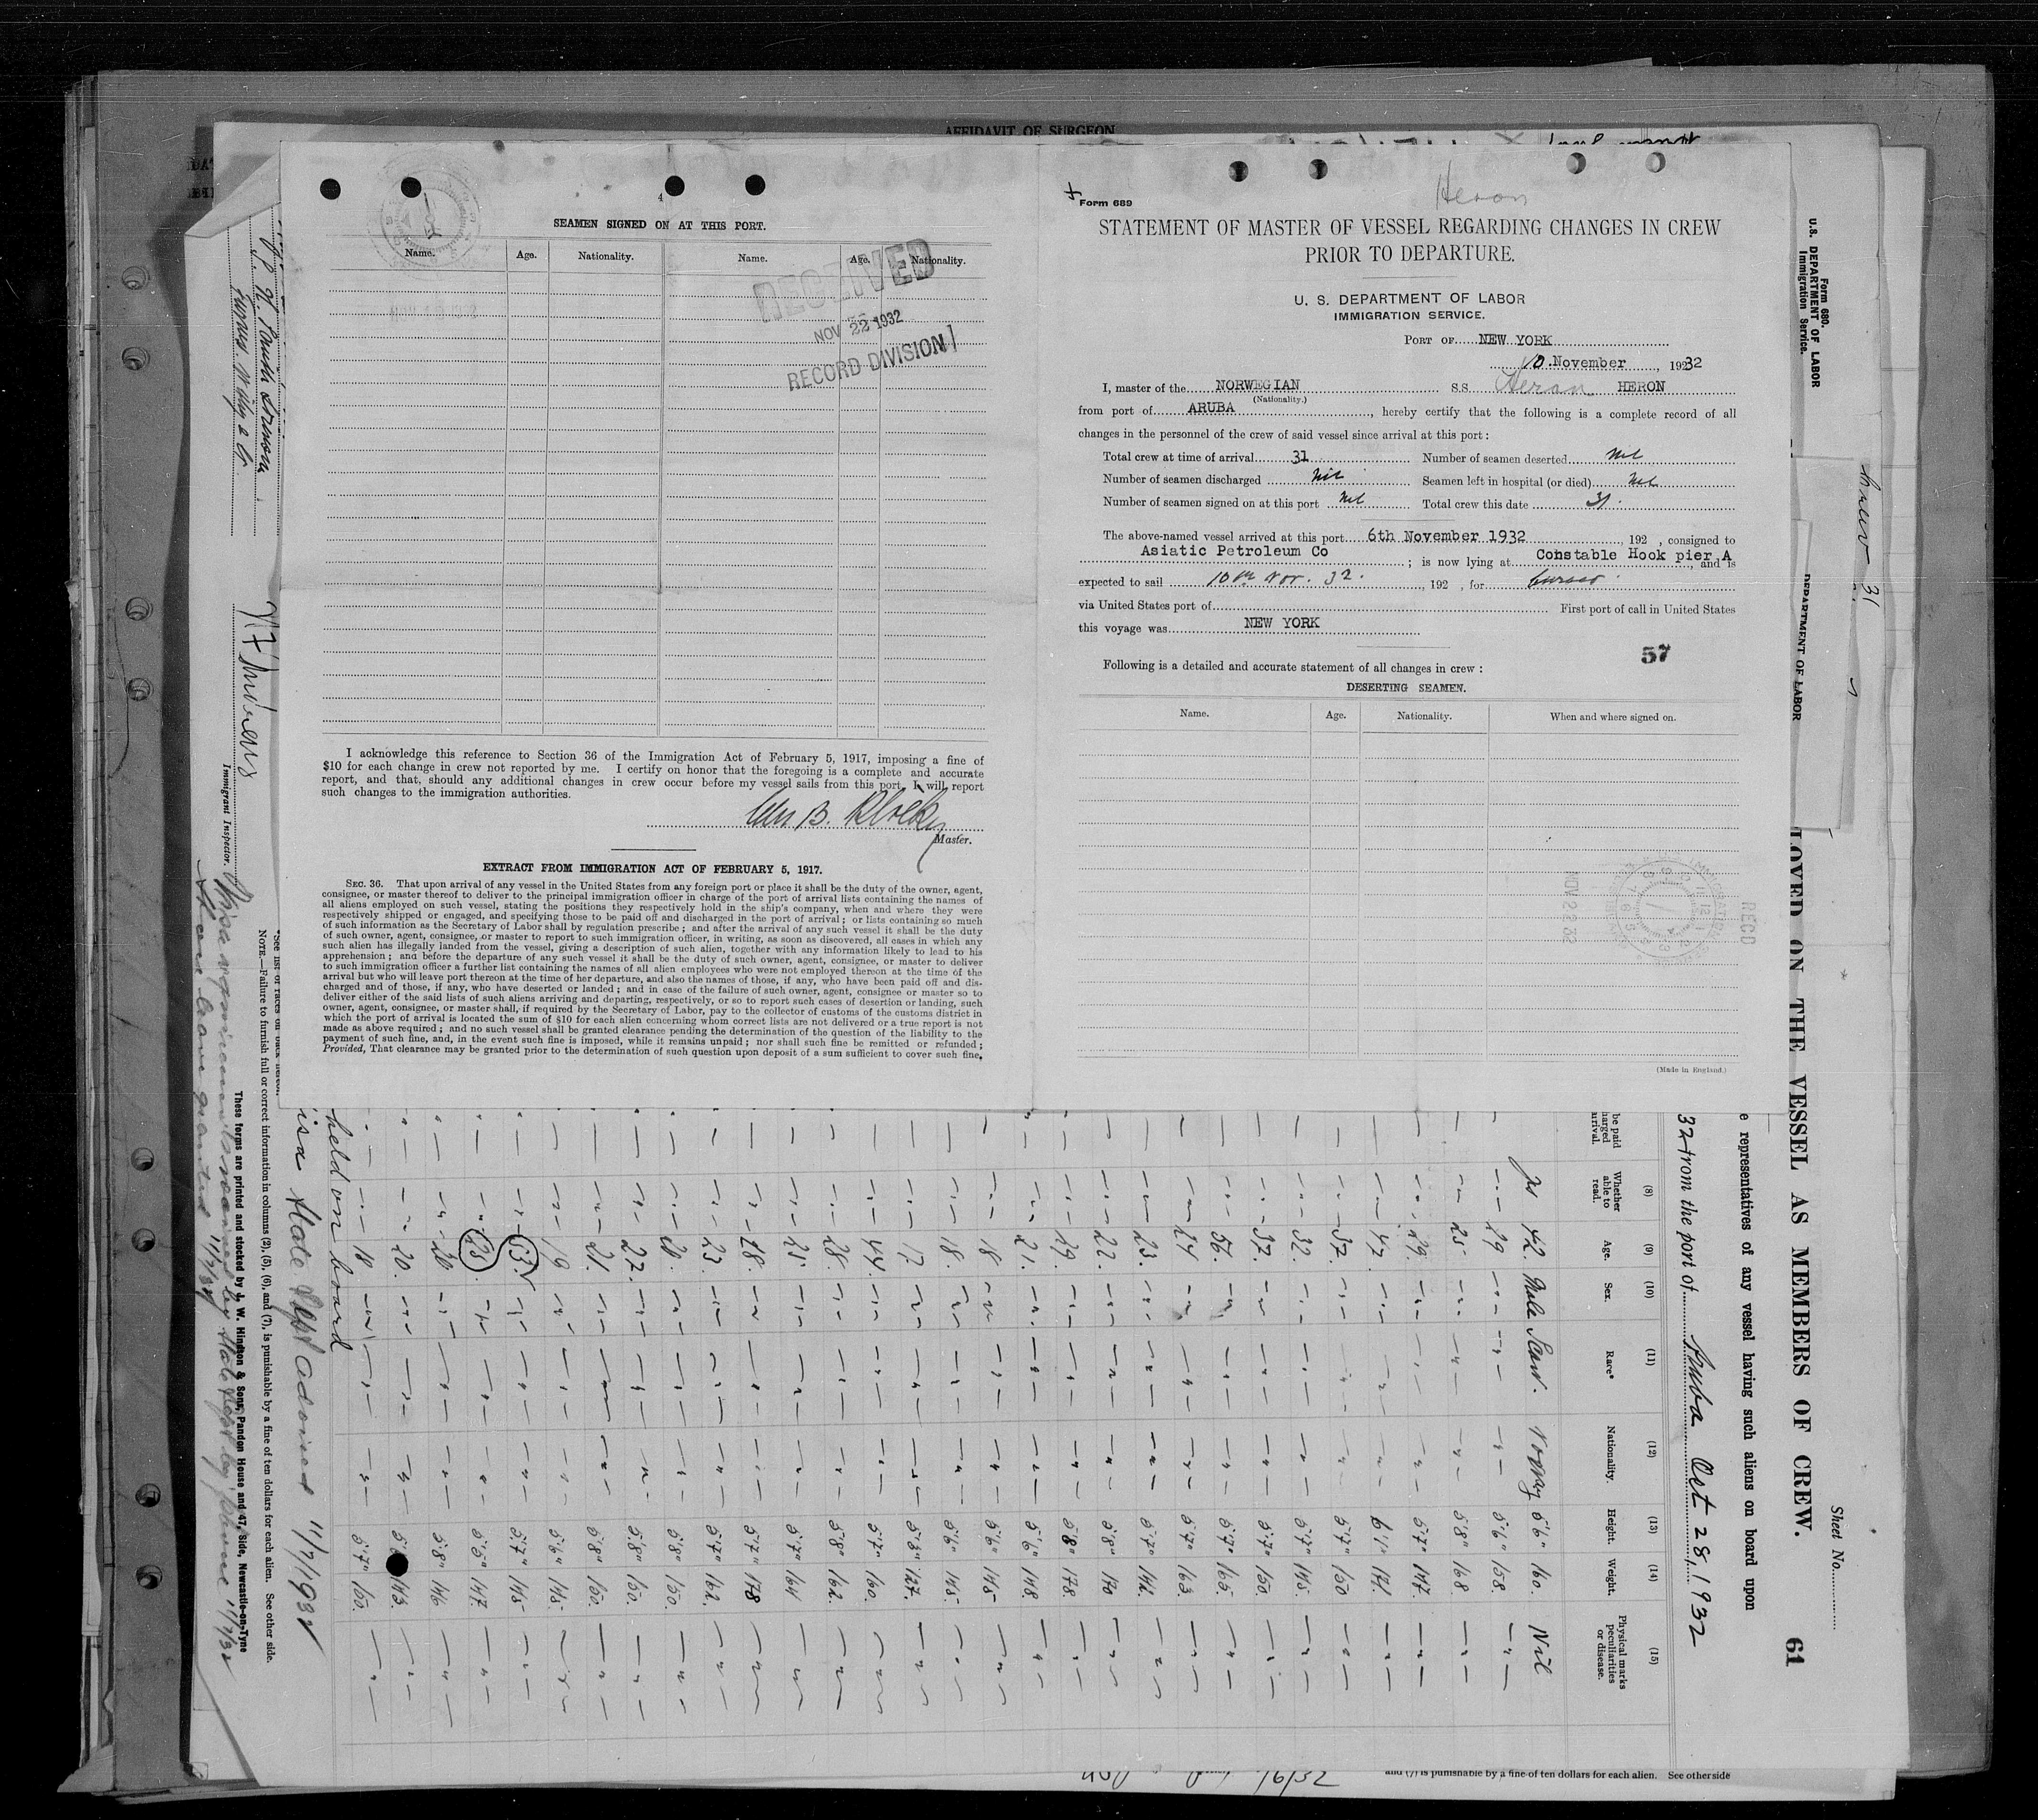 AFFIDAVIT OF SURGEON
4
SEAMEN SIGNED ON AT THIS PORT.
Name. Age. Nationality. Name. Age. Nationality.
RECEIVED
NOV 22 1932
RECORD DIVISION
I acknowledge this reference to Section 36 of the Immigration Act of February 5, 1917, imposing a fine of
$10 for each change in crew not reported by me. I certify on honor that the foregoing is a complete and accurate
report, and that, should any additional changes in crew occur before my vessel sails from this port, I will report
such changes to the immigration authorities.
Master.
EXTRACT FROM IMMIGRATION ACT OF FEBRUARY 5, 1917.
SEC. 36. That upon arrival of any vessel in the United States from any foreign port or place it shall be the duty of the owner, agent,
consignee, or master thereof to deliver to the principal immigration officer in charge of the port of arrival lists containing the names of
all aliens employed on such vessel, stating the positions they respectively hold in the ship's company, when and where they were
respectively shipped or engaged, and specifying those to be paid off and discharged in the port of arrival; or lists containing so much
of such information as the Secretary of Labor shall by regulation prescribe; and after the arrival of any such vessel it shall be the duty
of such owner, agent, consignee, or master to report to such immigration officer, in writing, as soon as discovered, all cases in which any
such alien has illegally landed from the vessel, giving a description of such alien, together with any information likely to lead to his
apprehension; and before the departure of any such vessel it shall be the duty of such owner, agent, consignee, or master to deliver
to such immigration officer a further list containing the names of all alien employees who were not employed thereon at the time of the
arrival but who will leave port thereon at the time of her departure, and also the names of those, if any, who have been paid off and dis-
charged and of those, if any, who have deserted or landed; and in case of the failure of such owner, agent, consignee or master so to
deliver either of the said lists of such aliens arriving and departing, respectively, or so to report such cases of desertion or landing, such
owner, agent, consignee, or master shall, if required by the Secretary of Labor, pay to the collector of customs of the customs district in
which the port of arrival is located the sum of $10 for each alien concerning whom correct lists are not delivered or a true report is not
made as above required; and no such vessel shall be granted clearance pending the determination of the question of the liability to the
payment of such fine, and, in the event such fine is imposed, while it remains unpaid; nor shall such fine be remitted or refunded;
Provided, That clearance may be granted prior to the determination of such question upon deposit of a sum sufficient to cover such fine.
Heron
Form 689
STATEMENT OF MASTER OF VESSEL REGARDING CHANGES IN CREW
PRIOR TO DEPARTURE.
U. S. DEPARTMENT OF LABOR
IMMIGRATION SERVICE.
PORT OF NEW YORK
10 November, 1932
I, master of the NORWEGIAN S.S. Heron HERON
(Nationality.)
from port of ARUBA, hereby certify that the following is a complete record of all
changes in the personnel of the crew of said vessel since arrival at this port:
Total crew at time of arrival 31 Number of seamen deserted Nil
Number of seamen discharged Nil Seamen left in hospital (or died) Nil
Number of seamen signed on at this port Nil Total crew this date 31.
The above-named vessel arrived at this port 6th November 1932, 192 , consigned to
Asiatic Petroleum Co ; is now lying at Constable Hook pier A, and is
expected to sail 10th Nov. 32., 192 , for Curacao.
via United States port of First port of call in United States
this voyage was NEW YORK
57
Following is a detailed and accurate statement of all changes in crew:
DESERTING SEAMEN.
Name. Age. Nationality. When and where signed on.
NOV 22 32
RECD
(Made in England.)
Form 680.
U.S. DEPARTMENT OF LABOR
Immigration Service.
31
DEPARTMENT OF LABOR
Sheet No.
LOYED ON THE VESSEL AS MEMBERS OF CREW. 61
e representatives of any vessel having such aliens on board upon
32 from the port of Aruba Oct 28, 1932
(8) (9) (10) (11) (12) (13) (14) (15)
Whether able to read. Age. Sex. Race* Nationality. Height. Weight. Physical marks peculiarities or disease.
42 Male Scan. Norway 5'6" 160. Nil
29 5'6" 158.
25. 5'8" 168.
29. 5'7" 147.
47. 6'1" 181.
37. 5'7" 150
32. 5'7" 145.
37. 5'7" 150.
56. 5'7" 165.
24 5'7" 163.
23. 5'7" 142.
22. 5'8" 170
29. 5'8" 178.
21. 5'6" 148.
18 5'6" 145
18. 5'6" 145.
17. 5'3" 127.
44. 5'7" 160.
28. 5'8" 162.
25 5'7" 164
28. 5'7" 178
23 5'7" 162.
20. 5'8" 150.
27. 5'8" 150.
21. 5'8" 150.
19 5'6" 145.
33. 5'7" 145
25. 5'5" 147.
20 5'8" 146
20. 143
18 5'7" 150.
held on board
isa State Dept advised 11/7/1932
*See list of races on back hereof.
NOTE.—Failure to furnish full or correct information in columns (2), (5), (6), and (7), is punishable by a fine of ten dollars for each alien. See other side.
These forms are printed and stocked by J. W. Hindson & Sons, Pandon House and 47, Side, Newcastle-on-Tyne
Immigrant Inspector.
Visa requirements waived by State Dept by phone 11/7/32
Shore leave granted 11/7/32
and (7) is punishable by a fine of ten dollars for each alien. See other side